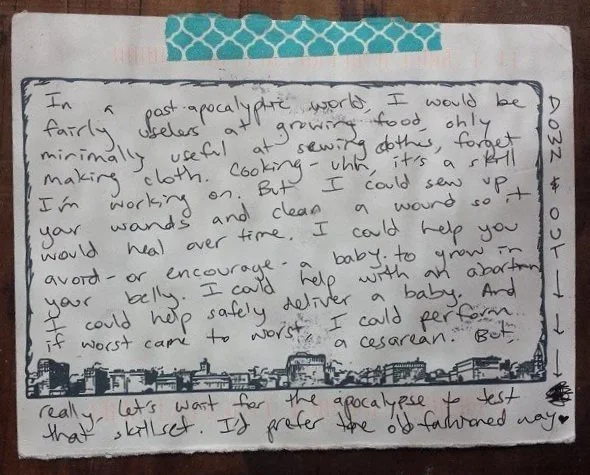 In a post-apocalyptic world, I would be
fairly useless at growing food, only
minimally useful at sewing clothes, forget
making cloth. Cooking - uhh, it's a skill
I'm working on. But I could sew up
your wounds and clean a wound so it
would heal over time. I could help you
avoid - or encourage - a baby to grow in
your belly. I could help with an abortion
I could help safely deliver a baby. And
if worst came to worst, I could perform
a cesarean. But,
really, let's wait for the apocalypse to test
that skillset. I'd prefer the old fashioned way ♥
DOWN & OUT → → →